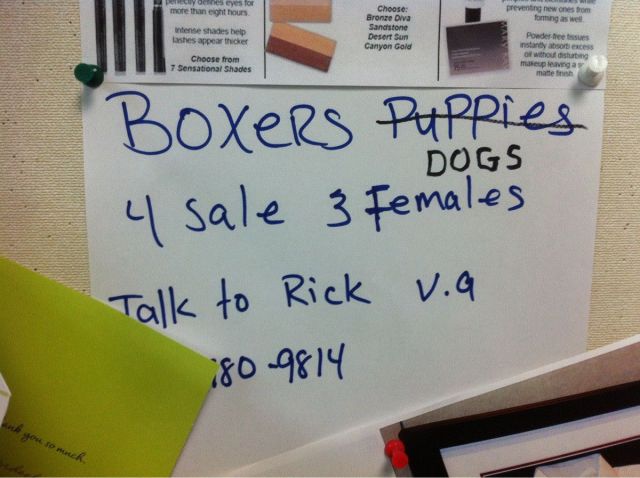 perfectly defines eyes for
more than eight hours.
Intense shades help
lashes appear thicker
Choose from
7 Sensational Shades
Choose:
Bronze Diva
Sandstone
Desert Sun
Canyon Gold
preventing new ones from
forming as well.
Powder-free tissues
instantly absorb excess
oil without disturbing
makeup leaving a
matte finish.
BOXERS PUPPIES
DOGS
4 Sale 3 Females
Talk to Rick V.a
180-9814
thank you so much.